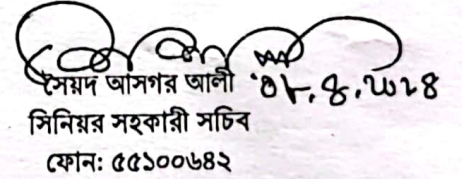 সৈয়দ আসগর আলী ০৮.৪.২০২৪
সিনিয়র সহকারী সচিব
ফোন: ৫৫১০০৬৪২